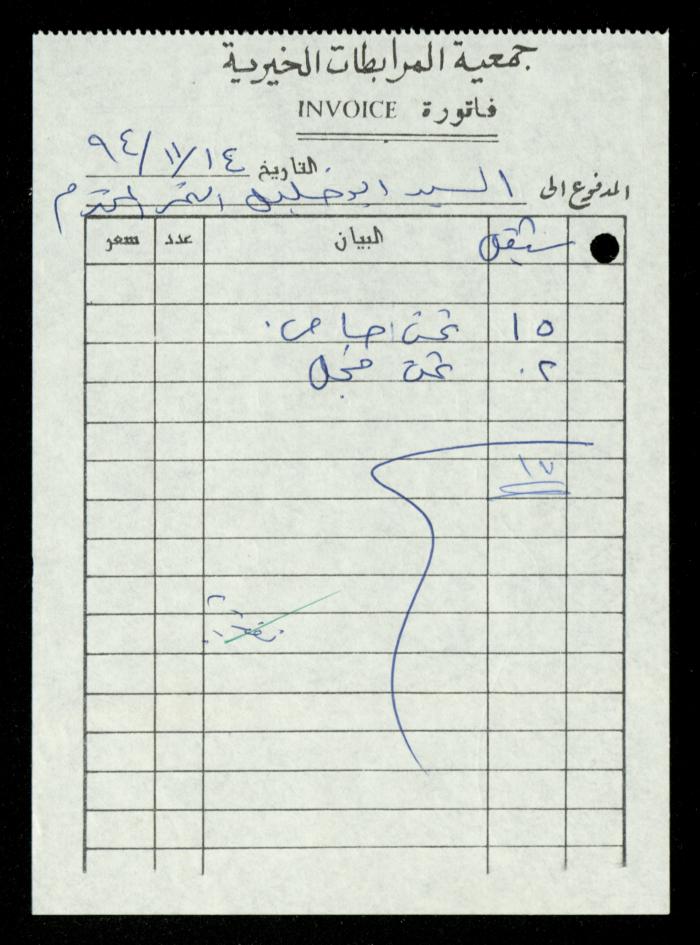 جمعية المرابطات الخيرية
فاتورة INVOICE
التاريخ ١٤/١١/٩٤
المدفوع الى السيد ابو خليل المحترم
شيقل البيان عدد سعر
١٥ ثمن اجاص.
٠٢ ثمن فجل
١٧